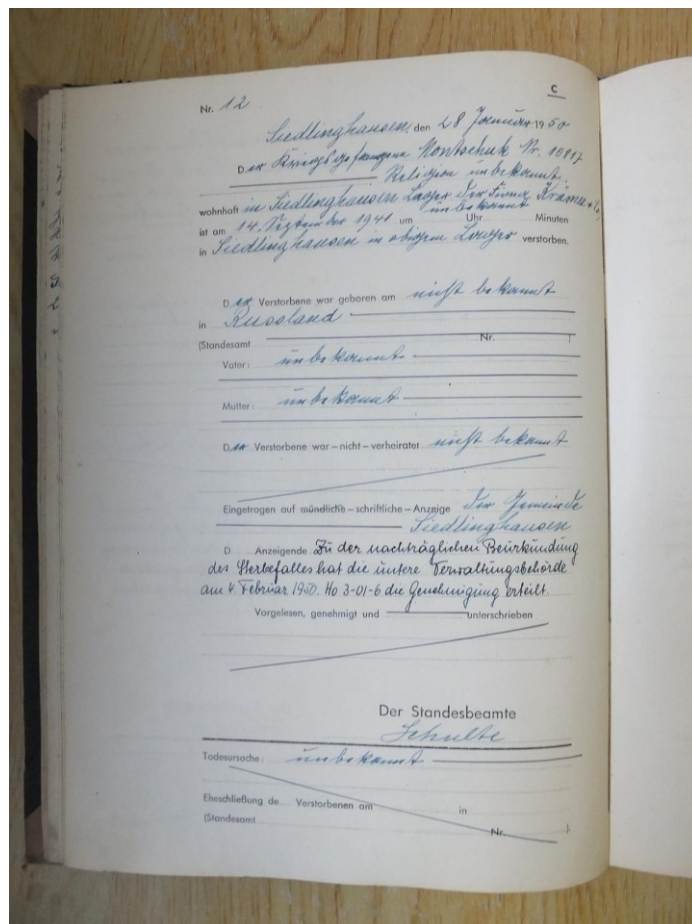 C
Nr. 12
Siedlinghausen, den 28 Januar 1950
Der Kriegsgefangene Montschuk Nr. 10917
Religion unbekannt
wohnhaft in Siedlinghausen Lager der Firma Krämer & Co,
ist am 14. September 1941 um unbekannt Uhr Minuten
in Siedlinghausen in obigem Lager verstorben.
Der Verstorbene war geboren am nicht bekannt
in Russland
(Standesamt Nr. )
Vater: unbekannt
Mutter: unbekannt
Der Verstorbene war – nicht – verheiratet nicht bekannt
Eingetragen auf mündliche – schriftliche – Anzeige der Gemeinde
Siedlinghausen
D Anzeigende Zu der nachträglichen Beurkundung
des Sterbefalles hat die untere Verwaltungsbehörde
am 4. Februar 1950. Ho 3-01-6 die Genehmigung erteilt.
Vorgelesen, genehmigt und unterschrieben
Der Standesbeamte
Schulte
Todesursache: unbekannt
Eheschließung de Verstorbenen am in
(Standesamt Nr. )